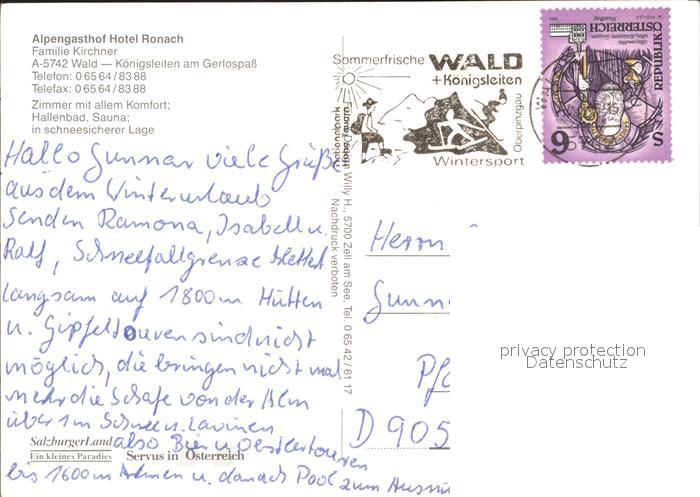 Alpengasthof Hotel Ronach
Familie Kirchner
A-5742 Wald — Königsleiten am Gerlospaß
Telefon: 0 65 64 / 83 88
Telefax: 0 65 64 / 83 88
Zimmer mit allem Komfort;
Hallenbad, Sauna;
in schneesicherer Lage
Hallo Gunnar viele Grüße
aus dem Winterurlaub
senden Ramona, Isabell u.
Ralf, Schneefallgrenze klettert
langsam auf 1800m Hütten
u. Gipfeltouren sind nicht
möglich, die bringen nicht mal
mehr die Schafe von der Alm
über 1m Schnee u. Lawinen
also Bier u.
bis 1600m u. danach Pool zum
SalzburgerLand
Ein kleines Paradies
Servus in Österreich
Willy H., 5700 Zell am See, Tel. 0 65 42 / 61 17
Nachdruck verboten
Sommerfrische WALD
+Königsleiten
Nationalpark
Hohe Tauern
Oberpinzgau
Wintersport
REPUBLIK
ÖSTERREICH
S 6
Herrn
Gunn
D 905
privacy protection
Datenschutz